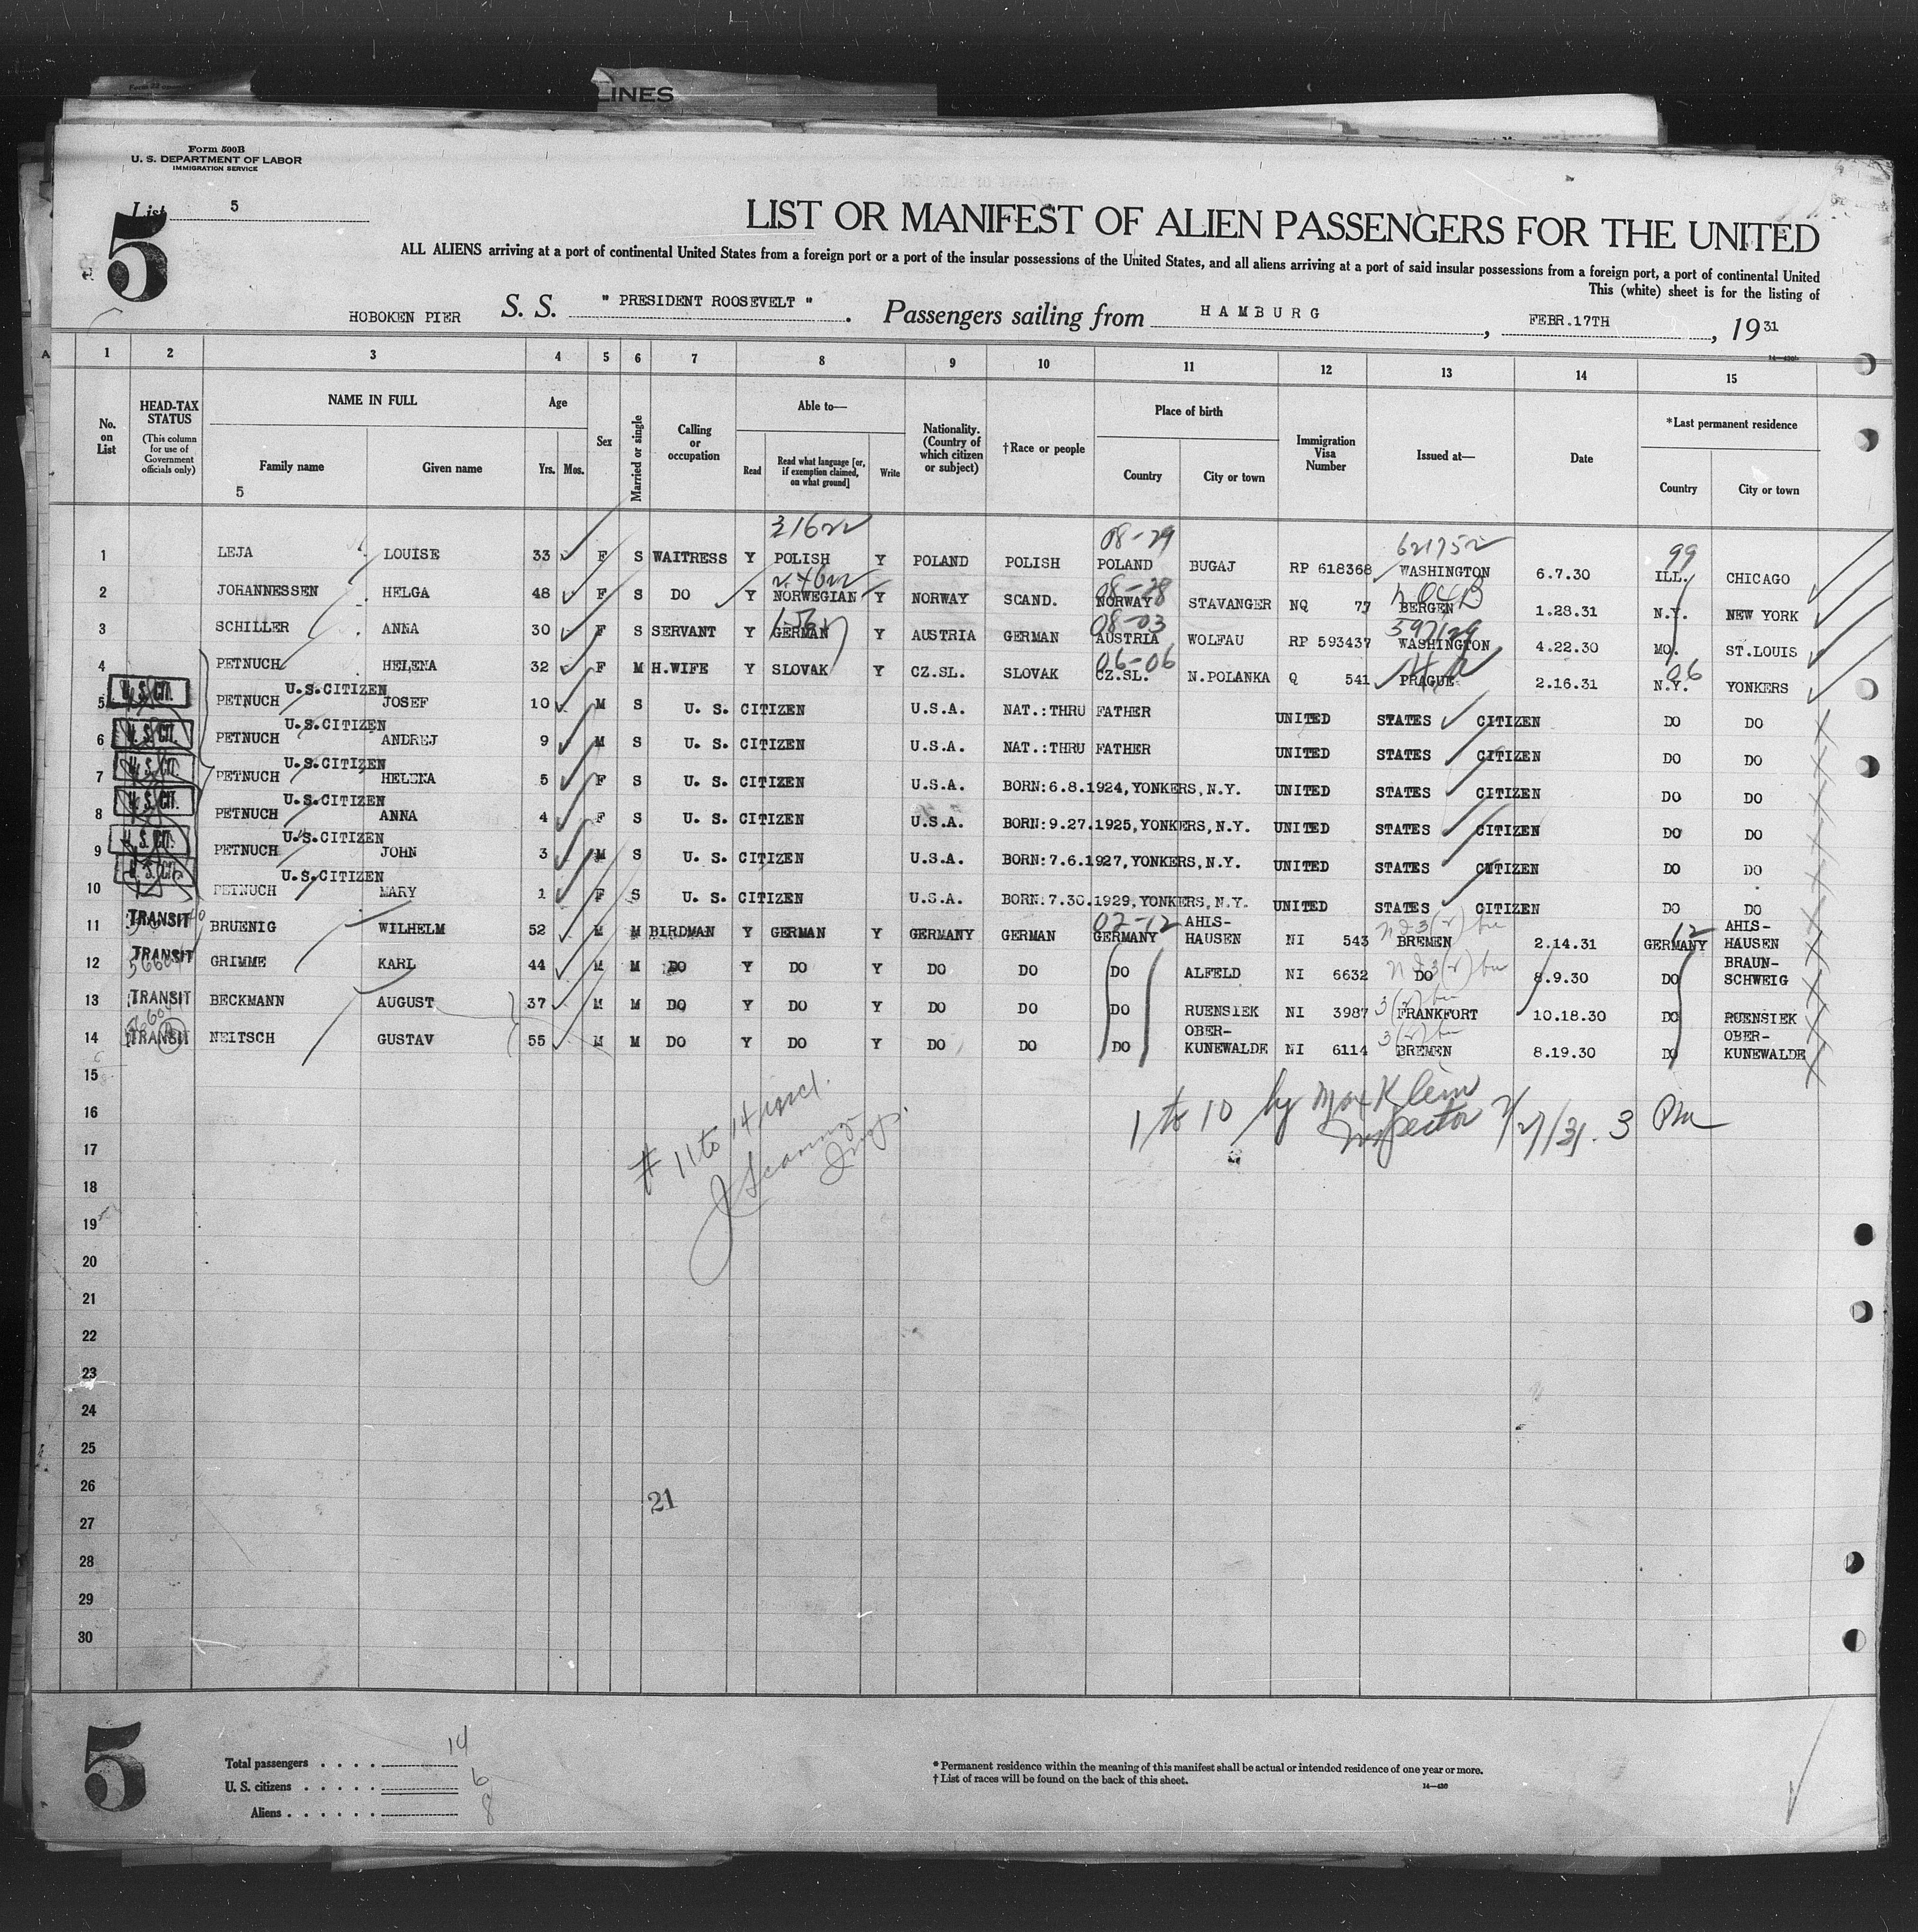 LINES
Form 500B
U. S. DEPARTMENT OF LABOR
IMMIGRATION SERVICE
List 5
5
LIST OR MANIFEST OF ALIEN PASSENGERS FOR THE UNITED
ALL ALIENS arriving at a port of continental United States from a foreign port or a port of the insular possessions of the United States, and all aliens arriving at a port of said insular possessions from a foreign port, a port of continental United
This (white) sheet is for the listing of
HOBOKEN PIER S. S. " PRESIDENT ROOSEVELT ". Passengers sailing from HAMBURG, FEBR.17TH, 1931
14—430
A 1 2 3 4 5 6 7 8 9 10 11 12 13 14 15
No. on List
HEAD-TAX STATUS (This column for use of Government officials only)
NAME IN FULL
Family name Given name
5
Age
Yrs. Mos.
Sex
Married or single
Calling or occupation
Able to—
Read Read what language [or, if exemption claimed, on what ground] Write
Nationality. (Country of which citizen or subject)
†Race or people
Place of birth
Country City or town
Immigration Visa Number
Issued at—
Date
*Last permanent residence
Country City or town
31622 08-29 621752 99
1 LEJA LOUISE 33 F S WAITRESS Y POLISH Y POLAND POLISH POLAND BUGAJ RP 618368 WASHINGTON 6.7.30 ILL. CHICAGO
08-28
2 JOHANNESSEN HELGA 48 F S DO Y NORWEGIAN Y NORWAY SCAND. NORWAY STAVANGER NQ 77 BERGEN 1.28.31 N.Y. NEW YORK
08-03 597129
3 SCHILLER ANNA 30 F S SERVANT Y GERMAN Y AUSTRIA GERMAN AUSTRIA WOLFAU RP 593437 WASHINGTON 4.22.30 MO. ST.LOUIS
06-06 06
4 PETNUCH HELENA 32 F M H.WIFE Y SLOVAK Y CZ.SL. SLOVAK CZ.SL. N.POLANKA Q 541 PRAGUE 2.16.31 N.Y. YONKERS
U. S. CIT. U.S.CITIZEN
5 PETNUCH JOSEF 10 M S U. S. CITIZEN U.S.A. NAT.:THRU FATHER UNITED STATES CITIZEN DO DO
U. S. CIT. U.S.CITIZEN
6 PETNUCH ANDREJ 9 M S U. S. CITIZEN U.S.A. NAT.:THRU FATHER UNITED STATES CITIZEN DO DO
U. S. CIT. U.S.CITIZEN
7 PETNUCH HELENA 5 F S U. S. CITIZEN U.S.A. BORN:6.8.1924,YONKERS,N.Y. UNITED STATES CITIZEN DO DO
U. S. CIT. U.S.CITIZEN
8 PETNUCH ANNA 4 F S U. S. CITIZEN U.S.A. BORN:9.27.1925,YONKERS,N.Y. UNITED STATES CITIZEN DO DO
U. S. CIT. U.S.CITIZEN
9 PETNUCH JOHN 3 M S U. S. CITIZEN U.S.A. BORN:7.6.1927,YONKERS,N.Y. UNITED STATES CITIZEN DO DO
U. S. CIT. U.S.CITIZEN
10 PETNUCH MARY 1 F S U. S. CITIZEN U.S.A. BORN:7.30.1929,YONKERS,N.Y. UNITED STATES CITIZEN DO DO
02-12 12
11 TRANSIT BRUENIG WILHELM 52 M M BIRDMAN Y GERMAN Y GERMANY GERMAN GERMANY AHIS-HAUSEN NI 543 BREMEN 2.14.31 GERMANY AHIS-HAUSEN
12 TRANSIT GRIMME KARL 44 M M DO Y DO Y DO DO DO ALFELD NI 6632 DO 8.9.30 DO BRAUN-SCHWEIG
13 TRANSIT BECKMANN AUGUST 37 M M DO Y DO Y DO DO DO RUENSIEK NI 3987 FRANKFORT 10.18.30 DO RUENSIEK
14 TRANSIT NEITSCH GUSTAV 55 M M DO Y DO Y DO DO DO OBER-KUNEWALDE NI 6114 BREMEN 8.19.30 DO OBER-KUNEWALDE
15
16
17
18
19
20
21
22
23
24
25
26
27
28
29
30
1 to 10 by Max Klein
Inspector 2/27/31. 3 PM
# 11 to 14 incl.
21
5
Total passengers . . . . 14
U. S. citizens . . . . . 6
Aliens . . . . . . 8
* Permanent residence within the meaning of this manifest shall be actual or intended residence of one year or more.
† List of races will be found on the back of this sheet.
14—430